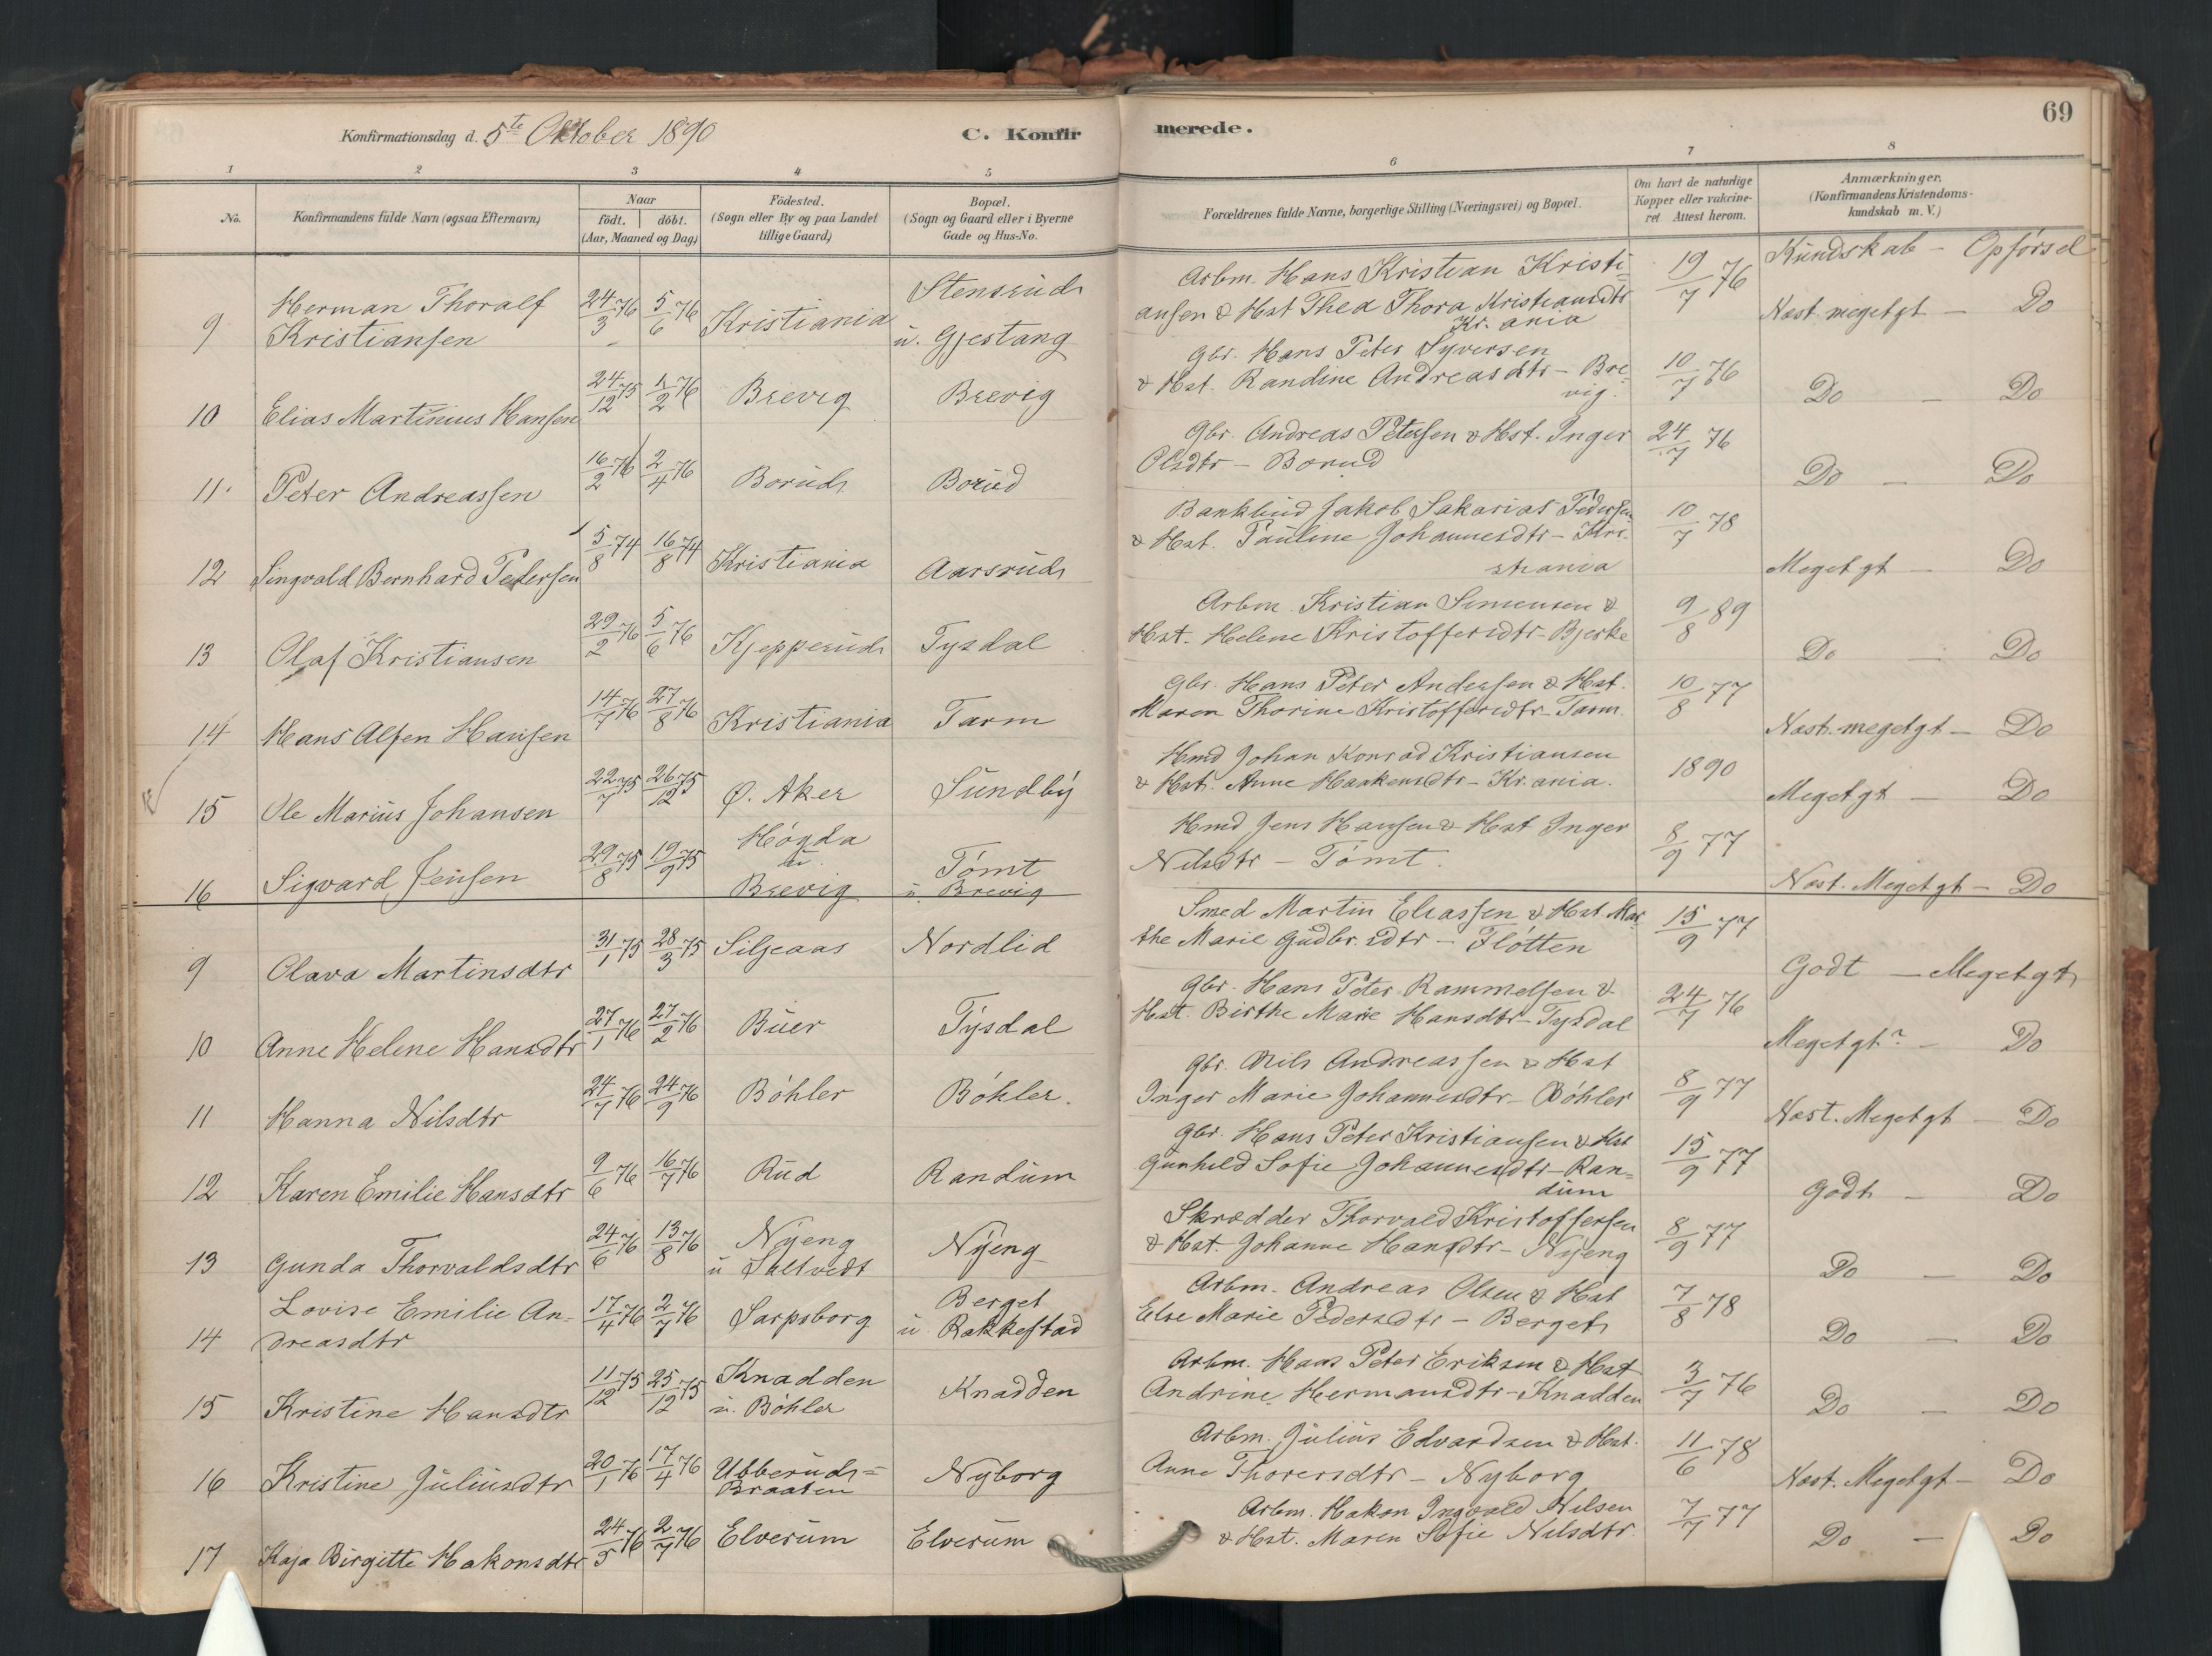 69
Konfirmationsdag d. 5te Oktober 1890 C. Konfirmerede.
1 2 3 4 5 6 7 8
No. Konfirmandens fulde Navn (ogsaa Efternavn) Naar födt. döbt. (Aar, Maaned og Dag) Födested. (Sogn eller By og paa Landet tillige Gaard) Bopæl. (Sogn og Gaard eller i Byerne Gade og Hus-No. Forældrenes fulde Navne, borgerlige Stilling (Næringsvei) og Bopæl. Om havt de naturlige Kopper eller vakcineret. Attest herom. Anmærkninger. (Konfirmandens Kristendomskundskab m. V.)
Kundskab - Opførsel
9 Herman Thoralf Kristiansen 24/3 76 5/6 76 Kristiania Stensrud u. Gjestang Arbm. Hans Kristian Kristiansen & Hst Thea Thora Kristiansdtr Kr.ania 19/7 76 Næst megetgt - Do
10 Elias Martinius Hansen 24/12 75 1/2 76 Brevig Brevig Gbr. Hans Peter Syversen & Hst. Randine Andreasdtr - Brevig. 10/7 76 Do - Do
11. Peter Andreassen 16/2 76 2/4 76 Borud Borud Gbr. Andreas Petersen & Hst. Inger Olsdtr - Borud 24/7 76 Do - Do
12 Singvald Bernhard Pedersen 5/8 74 16/8 74 Kristiania Aarsrud Bankbud Jakob Sakarias Pedersen & Hst. Pauline Johannesdtr - Kristiania 10/7 78 Meget gt - Do
13 Olaf Kristiansen 29/2 76 5/6 76 Kjepperud Tysdal Arbm. Kristian Simensen & Hst. Helene Kristoffersdtr - Bjerke 9/8 89 Do - Do
14 Hans Alfen Hansen 14/7 76 27/8 76 Kristiania Tarm Gbr. Hans Peter Andersen & Hst. Maren Thorine Kristoffersdtr - Tarm. 10/8 77 Næst. megetgt - Do
15 Ole Marius Johansen 22/7 75 26/12 75 Ø. Aker Sundby Hmd Johan Konrad Kristiansen & Hst. Anne Haakensdtr - Kr.ania. 1890 Megetgt - Do
16 Sigvard Jensen 29/8 75 19/9 75 Høgda u. Brevig Tømt u. Brevig Hmd Jens Hansen & Hst Inger Nilsdtr - Tømt. 8/9 77 Næst. Megetgt - Do
9 Olava Martinsdtr 31/1 75 28/3 75 Siljeaas Nordlid Smed Martin Eliassen & Hst. Marthe Marie Gudbr.sdtr - Fløtten 15/9 77 Godt - Megetgt
10 Anne Helene Hansdtr 27/1 76 27/2 76 Buer Tysdal Gbr. Hans Peter Rammelsen & Hst. Birthe Marie Hansdtr - Tysdal 24/7 76 Megetgt? - Do
11 Hanna Nilsdtr 24/7 76 24/9 76 Bøhler Bøhler. Gbr. Nils Andreassen & Hst Inger Marie Johannesdtr - Bøhler 8/9 77 Næst. Megetgt - Do
12 Karen Emilie Hansdtr 9/6 76 16/7 76 Rud Randum Gbr. Hans Peter Kristiansen & Hst Gunhild Sofie Johannesdtr - Randum 15/9 77 Godt - Do
13 Gunda Thorvaldsdtr 24/6 76 13/8 76 Nyeng u Saltvedt Nyeng Skrædder Thorvald Kristoffersen & Hst. Johanne Hansdtr - Nyeng 8/9 77 Do - Do
14 Lovise Emilie Andreasdtr 17/4 76 2/7 76 Sarpsborg Berget u. Rakkestad Arbm. Andreas Olsen & Hst Else Marie Pedersdtr - Berget 7/8 78 Do - Do
15 Kristine Hansdtr 11/12 75 25/12 75 Knadden u. Bøhler Knadden Arbm. Hans Peter Eriksen & Hst Andrine Hermansdtr - Knadden 3/7 76 Do - Do
16 Kristine Juliusdtr 20/1 76 17/4 76 Ubberuds=Braaten Nyborg Arbm. Julius Edvardsen & Hst. Anne Thorersdtr - Nyborg 11/6 78 Næst. Megetgt - Do
17 Kaja Birgitte Hakonsdtr 24/5 76 2/7 76 Elverum Elverum Arbm. Hakon Ingvald Nilsen & Hst. Maren Sofie Nilsdtr 7/7 77 Do - Do